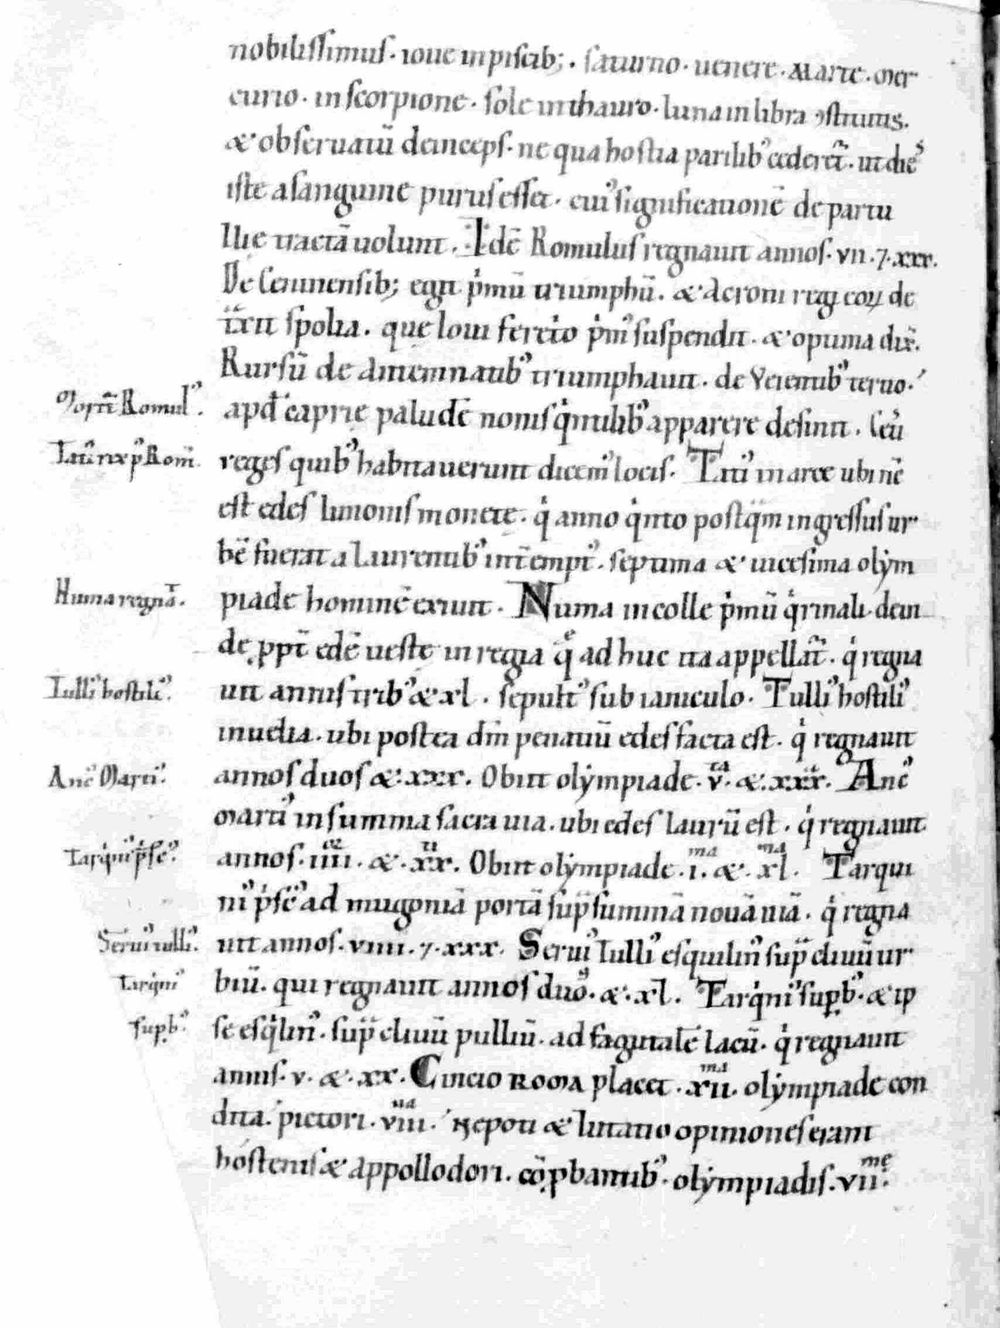 nobilissimus. ioue inpiscib;. saturno. uenere. Marte. mer
curio. inscorpione. sole inthauro. luna inlibra ↄstitutis.
& obseruatū deinceps. ne qua hostia parilib' cederet̄. ut dies
iste asanguine purus esset. cui' significationē de partu
Ilie tractā uolunt. Idē Romulus regnauit annos. vii. 7. xxx.
De Ceninensib; egit p̍mū triumphū. & Acroni regi eoꝝ de
traxit spolia. que Ioui feret'o p̍m' suspendit. & opima dix̄.
Rursū de antemnatib' triumphauit. de Veientib' tertio.
Morti Romul'.
apđ caprie paludē nonis q̍ntilib' apparere desiit. Ceti
Tati' rex p' Rom̄.
reges quib' habitauerunt dicem' locis. Tati' in arce ubi nc̄
est edes Iunonis monete. q̍ anno q̍nto postq̄m ingressus ur
bē fuerat a Laurentib' int̄empt'. septima & uicesima olym
Numa regna.
piade hominē exiuit. Numa incolle p̍mū q̍rinali. dein
de ꝓpt̄ edē ueste in regia q̄ ad huc ita appellat̄. q̍ regna
Tulli' hostili'.
uit annis trib' & xl. sepult' sub ianiculo. Tulli' hostili'
inuelia. ubi postea dm̄ penatiū edes facta est. q̍ regnauit
Anc' Marti'.
annos duos &. xxx. Obiit olympiade. v.ta &. xxx. Anc'
marti' insumma sacra uia. ubi edes Larū est. q̍ regnauit
Tarq̍ni' p̍sc'.
annos. iiii. &. xx. Obiit olympiade. i.ma &. xl.ma Tarqui
ni' p̍sc' ad mugoniā portā sup̄ summā nouā uiā. q̍ regna
Serui' tulli'.
uit annos. viiii. 7. xxx. Serui' Tulli' esquilin' sup̄ cliuū ur
tarq̍ni'
biū. qui regnauit annos duos. &. xl. Tarq̍ni' suꝑb'. & ip
suꝑb'
se esq̍lin'. sup̄ cliuū pulliū. ad fagutalē lacū. q̍ regnauit
annis. v. &. xx. Cincio Roma placet. xii.ma olympiade con
dita. pictori. viii.ua Nepoti & lutatio opiniones erant
hostenis & appollodori. cōꝓbantib'. olympiadis. vii.me